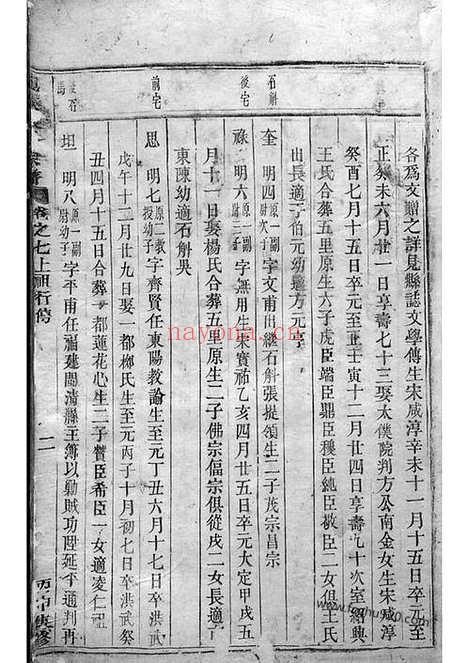 各為文贈之詳見縣誌文學傳生宋咸淳辛未十一月十五日卒元至
正癸未六月廿一日享壽七十三娶太僕院判方公南金女生宋咸淳
癸酉七月十五日卒元至正壬寅十二月廿四日享壽九十次室紹興
王氏合葬五里原生六子虎臣端臣鼎臣稷臣純臣敬臣二女俱王氏
出長適于伯元幼適方元亨
石斛
奎 明四 原一 尉次子 字文甫出繼石斛張提領生二子茂宗昌宗
後宅
祿 明六 原二 尉子 字無用生宋寶祐乙亥四月廿五日卒元大定甲戌五
月十一日娶楊氏合葬五里原生二子佛宗傴宗俱從戌二女長適
東陳幼適石斛吳
前宅
思 明七 原二教 授幼子 字齊賢任東陽教諭生至元丁丑六月十七日卒洪武
戊午十二月廿九日娶一都柳氏生至元丙子十月初七日卒洪武癸
丑四月十五日合葬一都蓮花心生二子賛臣希臣一女適凌仁
後石馬
坦 明八 原一 尉幼子 字平甫任福建閩清縣主簿以勦賊功陞延平通判再
卷之七上祖行傳
二